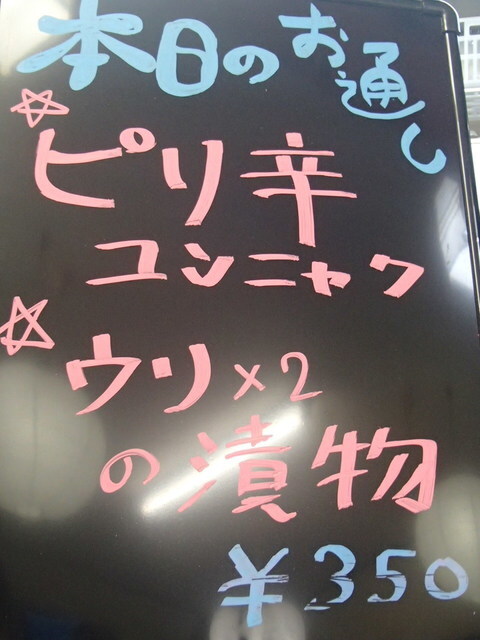 本日のお通し
☆ピリ辛
コンニャク
☆ウリ×2
の漬物
¥350